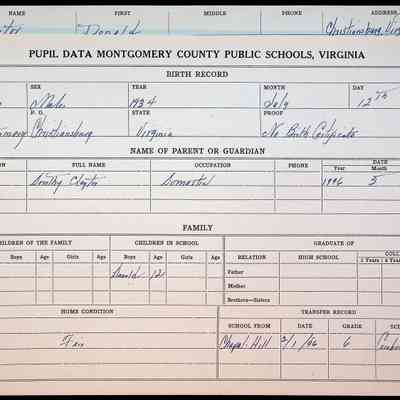 NAME FIRST MIDDLE PHONE ADDRESS
Donald Christiansburg, Vir
PUPIL DATA MONTGOMERY COUNTY PUBLIC SCHOOLS, VIRGINIA
BIRTH RECORD
SEX YEAR MONTH DAY
Male 1934 July 12th
P. O. STATE PROOF
Christiansburg Virginia No Birth Certificate
NAME OF PARENT OR GUARDIAN
ON FULL NAME OCCUPATION PHONE DATE
Year Month
Dorothy Claytor Domestic 1946 5
FAMILY
CHILDREN OF THE FAMILY CHILDREN IN SCHOOL GRADUATE OF
Boys Age Girls Age Boys Age Girls Age RELATION HIGH SCHOOL COLL
2 Years 4 Ye
Donald 12 Father
Mother
Brothers—Sisters
HOME CONDITION TRANSFER RECORD
SCHOOL FROM DATE GRADE SC
Fair Chapel Hill /1/46 6